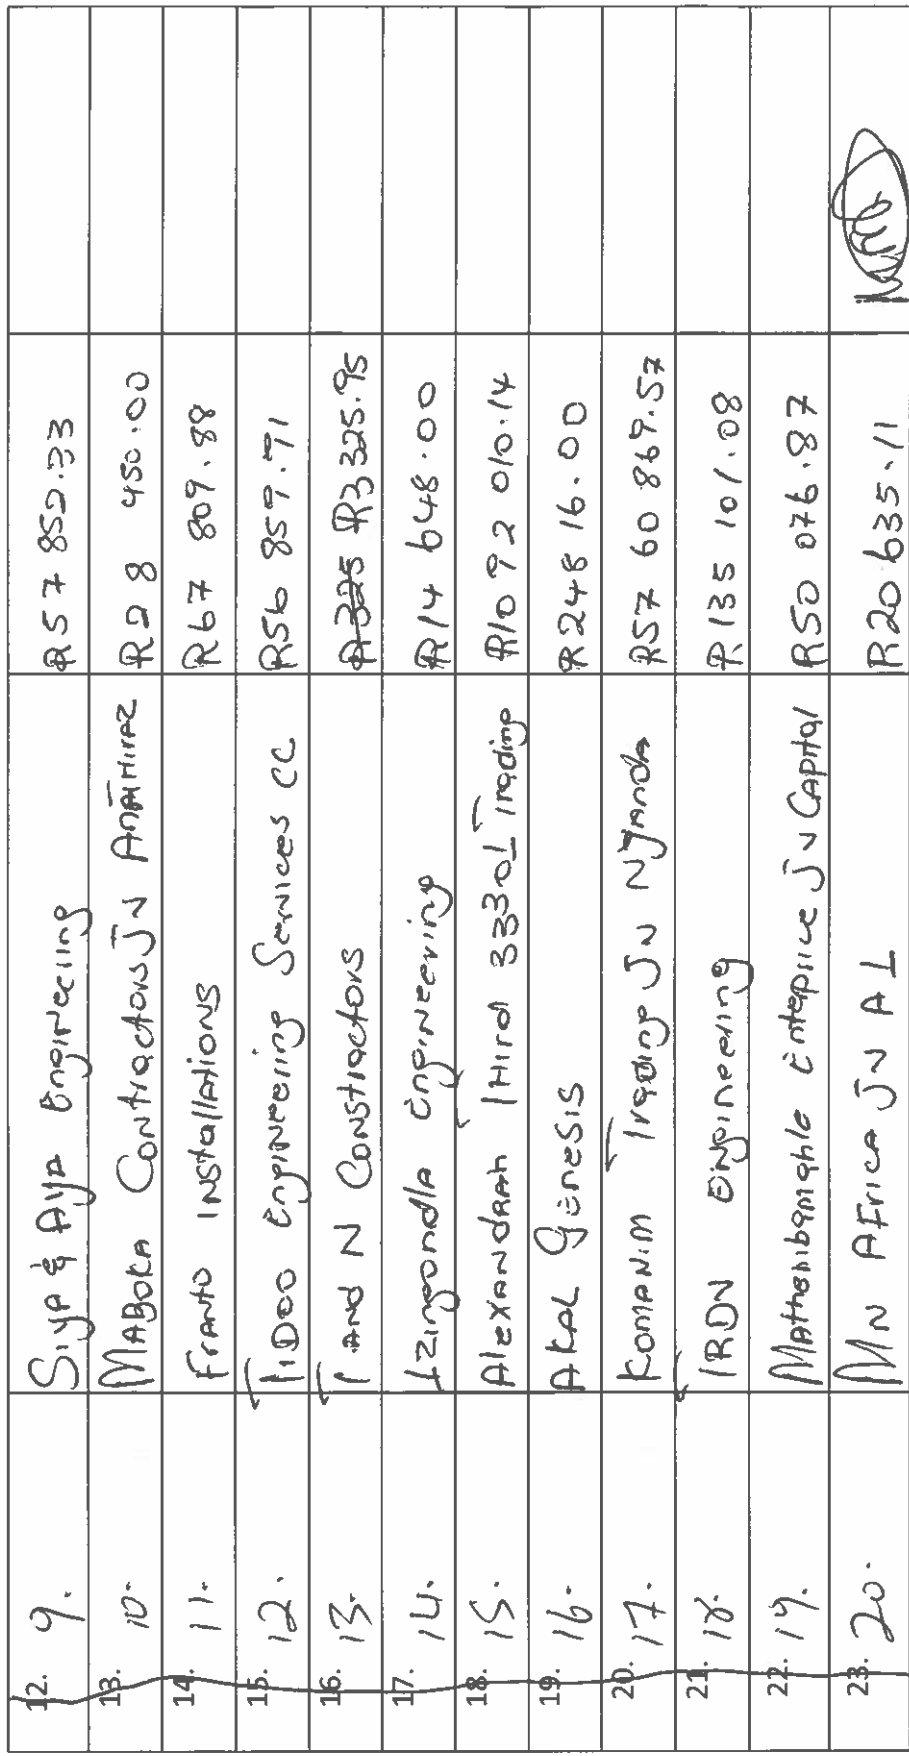 12. 9. Siya & Aya Engineering R57 852.33
13. 10. Maboka Contractors JV R28 450.00
14. 11. Franto Installations R67 809.88
15. 12. Tidoo Engineering Services CC R56 859.71
16. 13. T and N Constractors R325 R3 325.95
17. 14. Izingondla Engineering R14 648.00
18. 15. Alexandrah Third 3330 Trading R1092 010.14
19. 16. Akal Genesis R248 16.00
20. 17. Komanim Trading JV Njanda R57 60 869.57
21. 18. TRDN Engineering R135 101.08
22. 19. Enterprice JV Capital R50 076.87
23. 20. MN Africa JV AL R20 635.11